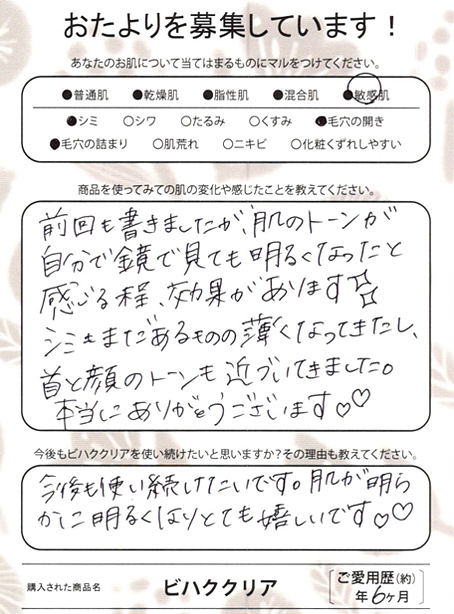 おたよりを募集しています！
あなたのお肌について当てはまるものにマルをつけてください。
●普通肌 ●乾燥肌 ●脂性肌 ●混合肌 ●敏感肌
●シミ ○シワ ○たるみ ○くすみ ●毛穴の開き
●毛穴の詰まり ○肌荒れ ○ニキビ ○化粧くずれしやすい
商品を使ってみての肌の変化や感じたことを教えてください。
前回も書きましたが、肌のトーンが
自分で鏡で見ても明るくなったと
感じる程、効果があります☆☆
シミもまだあるものの薄くなってきたし、
首と顔のトーンも近づいてきました。
本当にありがとうございます。♡♡
今後もビハククリアを使い続けたいと思いますか？その理由も教えてください。
今後も使い続けたいです。肌が明ら
かに明るくなりとても嬉しいです。♡♡
購入された商品名 ビハククリア ご愛用歴（約） 年6ヶ月